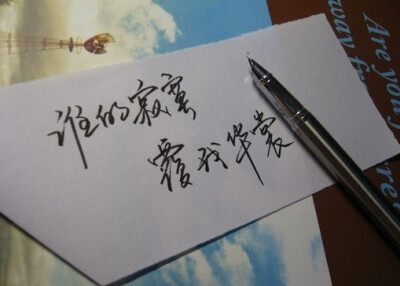 谁的寂寞
覆我华裳
Are you